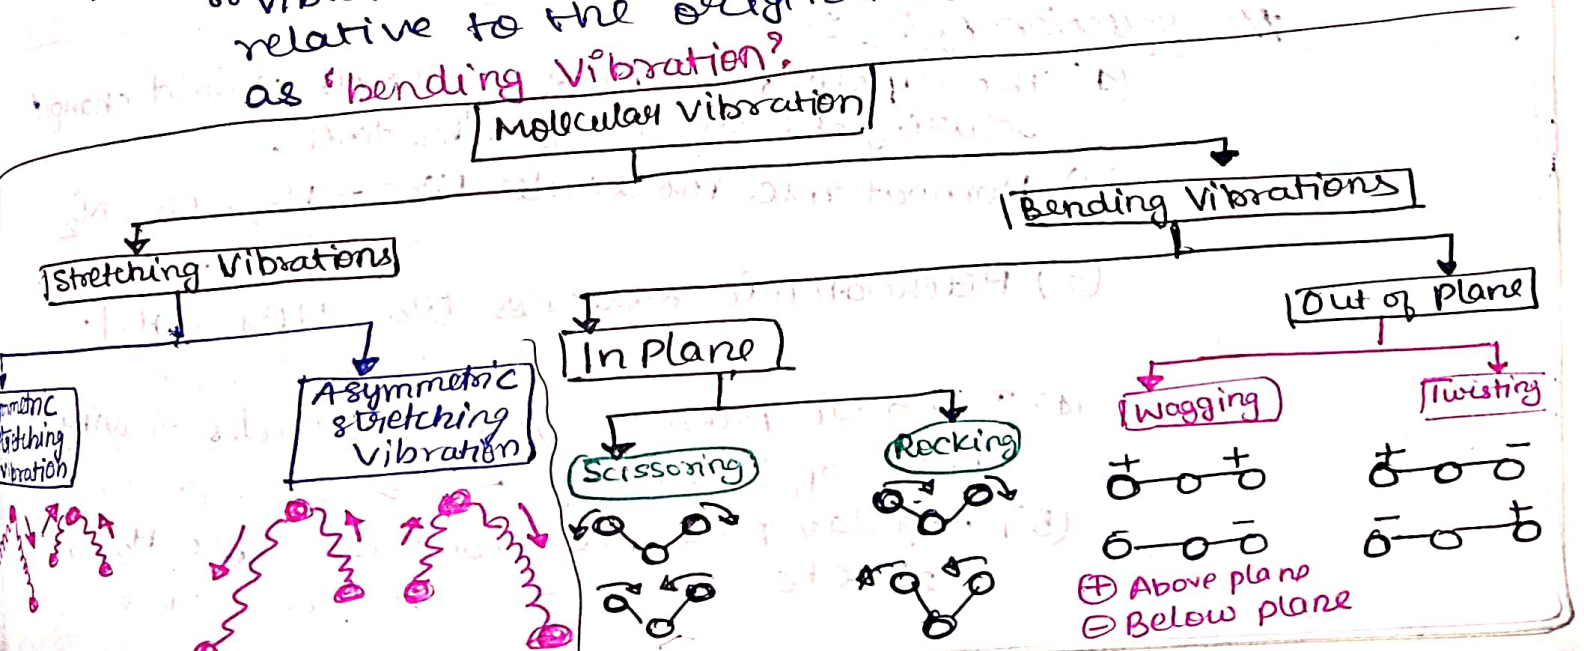 relative to the
as 'bending Vibration'.
Molecular Vibration
Stretching Vibrations
Bending Vibrations
In plane
Out of plane
Asymmetric
stretching
Vibration
Scissoring
Rocking
Wagging
Twisting
+ +
+ -
- -
- +
⊕ Above plane
⊖ Below plane